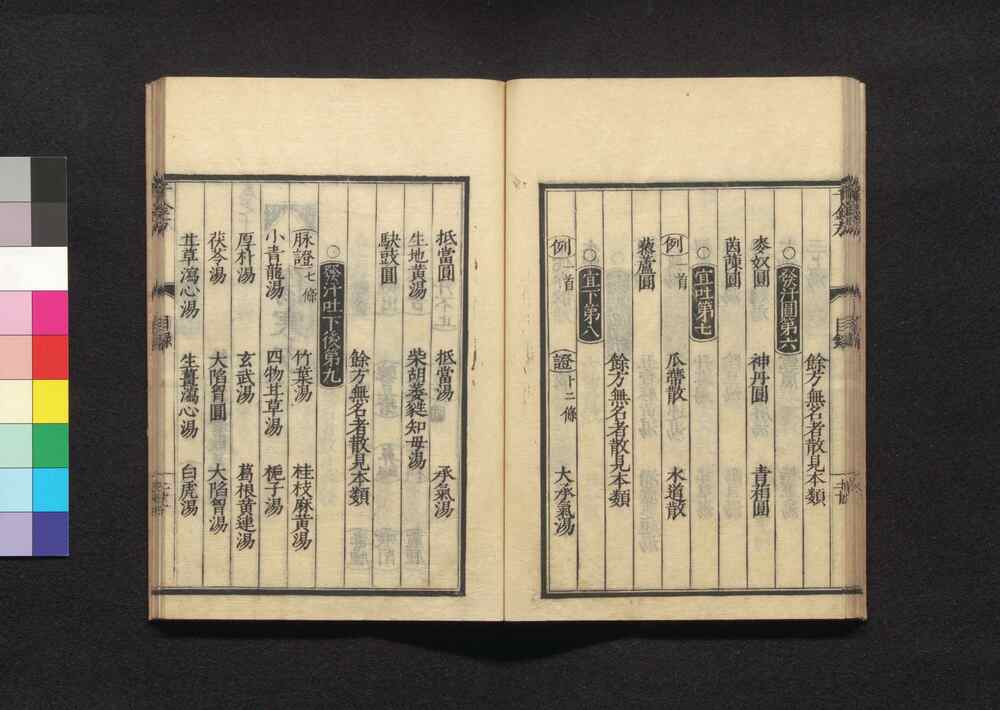 餘方無名者散見本類
發汗圓第六
麥奴圓 神丹圓 青相圓
茵蔯圓
宜吐第七
例一首 瓜蔕散 水道散
藜蘆圓
餘方無名者散見本類
宜下第八
例一首 證十二條 大承氣湯
抵當圓 抵當湯 承氣湯
生地黃湯 柴胡蔞蓰知母湯
駃豉圓
餘方無名者散見本類
發汗吐下後第九
脉證七條 竹葉湯 桂枝麻黃湯
小青龍湯 四物甘草湯 梔子湯
厚朴湯 玄武湯 葛根黃連湯
茯苓湯 大陷胷圓 大陷胷湯
甘草瀉心湯 生薑瀉心湯 白虎湯
千金方 目録